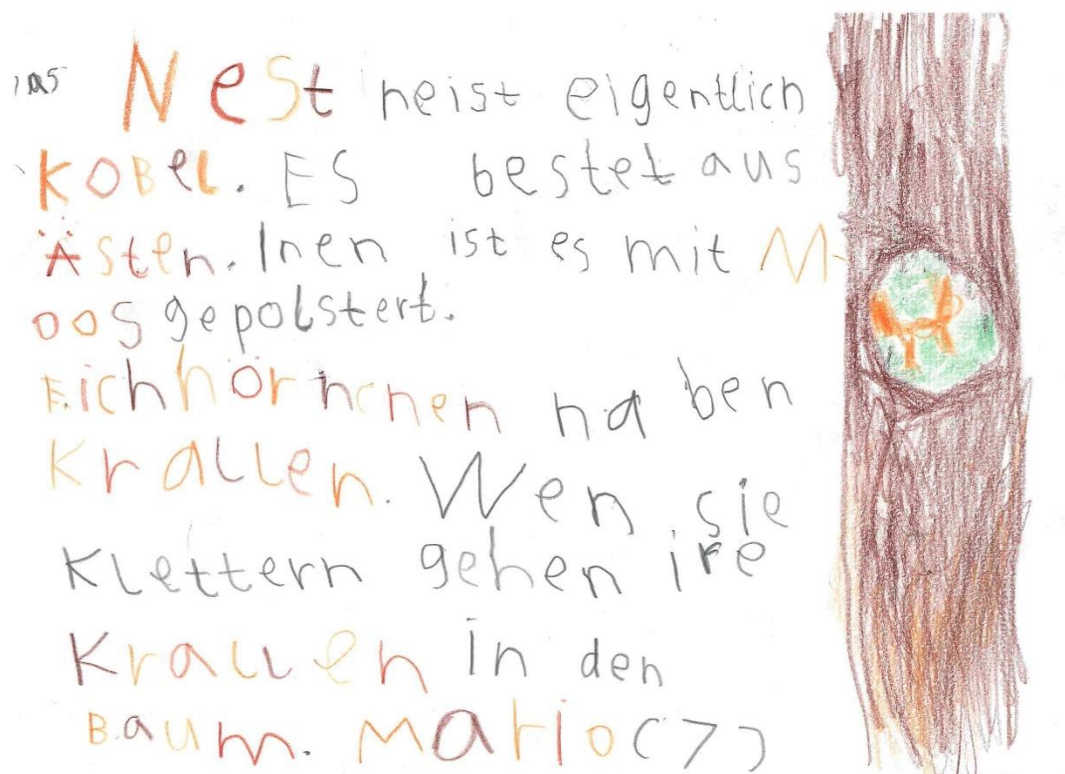 Das Nest heist eigentlich
Kobel. ES bestet aus
Ästen. Inen ist es mit M-
oos gepolstert.
Eichhörnchen haben
Krallen. Wen sie
Klettern gehen ire
Krallen in den
Baum. Mario (7)